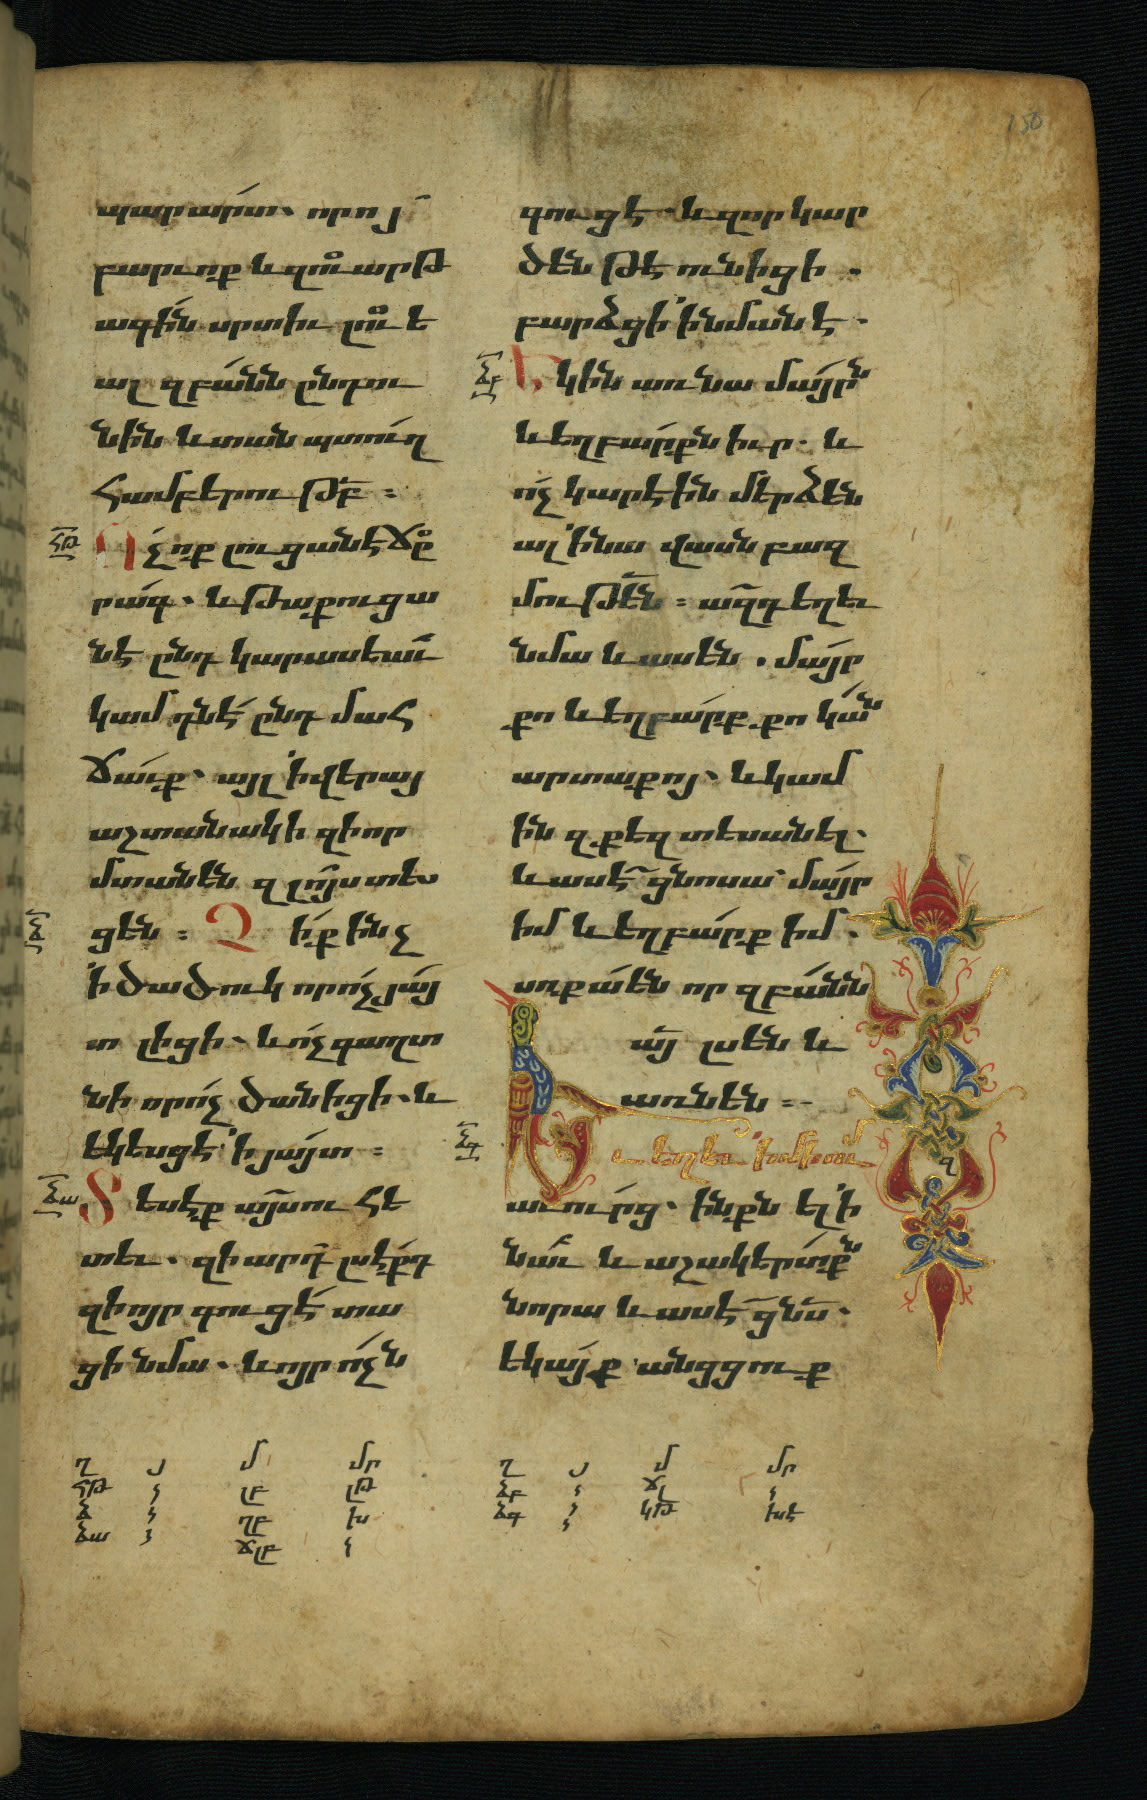 150
պարարտ. որոյ
բարւոք և զուարթ
ագին սրտիւ լուե
ալ զբանն ընդու
նին և տան պտուղ
համբերուԹԲ ։
ՀԹ
Ոչ ոք լուցանէ ճը
րագ. և թաքուցա
նէ ընդ կարասեաւ
կամ դնէ ընդ մահ
ճաւք. այլ ՛ի վերայ
աշտանակի զի որ
մտանեն զլոյս տես
Ձ
ցեն ։ Զի չիք ինչ
՛ի ծածուկ որ ոչ յայ
տ լիցի. և ոչ գաղտ
նի որ ոչ ծանիցի. և
եկեսցէ ՛ի յայտ ։
ՁԱ
Տեսէք այսուհե
տեւ. զի արդ լսէքդ
զի ոյր գուցէ տա
ցի նմա. և ոյր ոչն
գուցէ. և զոր կար
ծեն թէ ունիցի.
բարձցի ՛ի նմանէ.
ՁԲ
Եկին առ նա մայրն
և եղբարքն իւր. և
ոչ կարէին մերձեն
ալ ՛ի նա վասն բազ
մուԹեն ։ ազդ եղեւ
նմա և ասեն. մայր
քո և եղբարք քո կան
արտաքոյ. և կամ
ին զքեզ տեսանել.
և ասէ ցնոսա մայր
իմ և եղբարք իմ.
սոքա են որ զբանն
այ լսեն և
առնեն ։
ՁԳ
Եւ եղեւ ՛ի միում
աւուրց. ինքն ել ՛ի
նաւ և աշակերտքն
նորա և ասէ ցնս.
եկայք անցցուք
Ղ Յ Մ ՄՐ
ՀԹ ԼԲ ԼԹ
Ձ ՂԲ ԽՍ
ՁԱ ՃԼԲ
Ղ Յ Մ ՄՐ
ՁԲ ՃԼ
ՁԳ ԿԹ ԽԷ